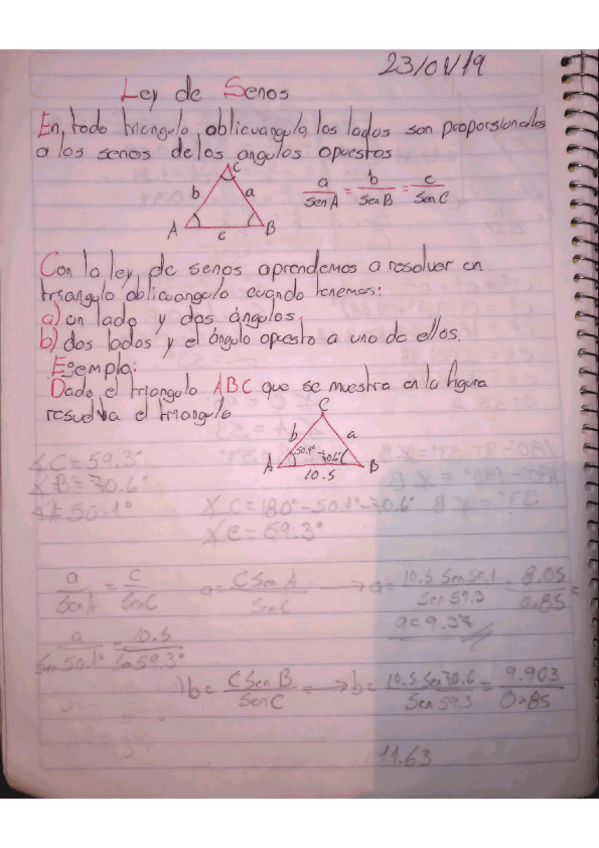 23/01/19
Ley de Senos
En todo triangulo oblicuangulo, los lados son proporsionales
a los senos de los angulos opuestos
C
b a
A B
c
a/Sen A = b/Sen B = c/Sen C
Con la ley de senos aprendemos a resolver un
triangulo oblicuangulo cuando tenemos:
a) un lado y dos ángulos.
b) dos lados y el ángulo opuesto a uno de ellos.
Ejemplo:
Dado el triangulo ABC que se muestra en la figura
resuelva el triangulo
C
b a
50.1° 70.6°
A B
10.5
∡C=59.3°
∡B=70.6°
50.1°
∡C=180°-50.1°-70.6°
∡C=59.3°
a/Sen A = c/Sen C
a= C Sen A/Sen C → a= 10.5 Sen 50.1/Sen 59.3 = 8.05/0.85 =
a=9.37
a/Sen 50.1° = 10.5/Sen 59.3°
b= C Sen B/Sen C = → b= 10.5 Sen 70.6/Sen 59.3 = 9.903/0.85
11.63